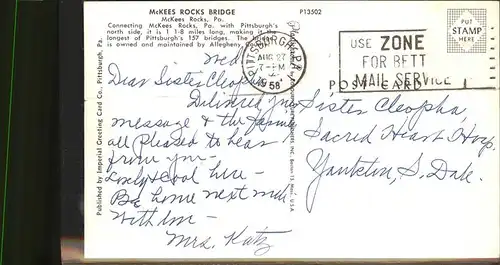 McKEES ROCKS BRIDGE
McKees Rocks, Pa.
Connecting McKees Rocks, Pa. with Pittsburgh's
north side, it is 1 1-8 miles long, making it the
longest of Pittsburgh's 157 bridges. The
is owned and maintained by Allegheny
P13502
PLACE
PUT
STAMP
HERE
PITTSBURGH, PA.
AUG 27
7-PM
1958
USE ZONE
FOR BETT
MAIL SERVICE
POST CARD
Published by Imperial Greeting Card Co., Pittsburgh, Pa.
Wed
Dear Sister Cleopha
Delivered your
message & the family
all pleased to hear
from you -
Lovely & cool here -
Be home next
with love -
Mrs. Katz
Sister Cleopha,
Sacred Heart Hosp.
Yankton, S. Dak.